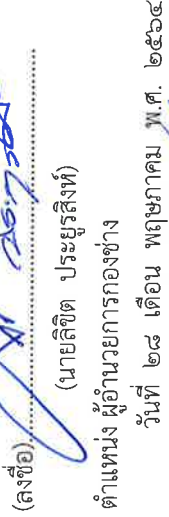 (ลงชื่อ)
(นายลิขิต ประยูรสิงห์)
ตำแหน่ง ผู้อำนวยการกองช่าง
วันที่ ๒๘ เดือน พฤษภาคม พ.ศ. ๒๕๖๔